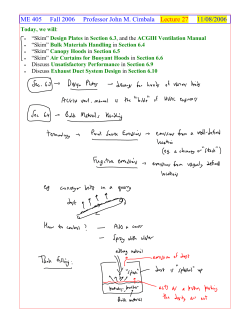 ME 405 Fall 2006 Professor John M. Cimbala Lecture 27 11/08/2006
Today, we will:
• "Skim" Design Plates in Section 6.3, and the ACGIH Ventilation Manual
• "Skim" Bulk Materials Handling in Section 6.4
• "Skim" Canopy Hoods in Section 6.5
• "Skim" Air Curtains for Buoyant Hoods in Section 6.6
• Discuss Unsatisfactory Performance in Section 6.9
• Discuss Exhaust Duct System Design in Section 6.10
Sec. 6.3 → Design Plates →
ACGIH vent. manual is the "bible" of HVAC engineers
Sec 6.4 → Bulk Materials Handling
Terminology → Point Source Emissions → emission from a well-defined location
(e.g. a chimney or "stack")
Fugitive emissions → emission from vaguely defined locations
e.g. conveyor belts in a quarry
dust
How to control? – Add a cover
– Spray with water
Tank filling:
bulk material